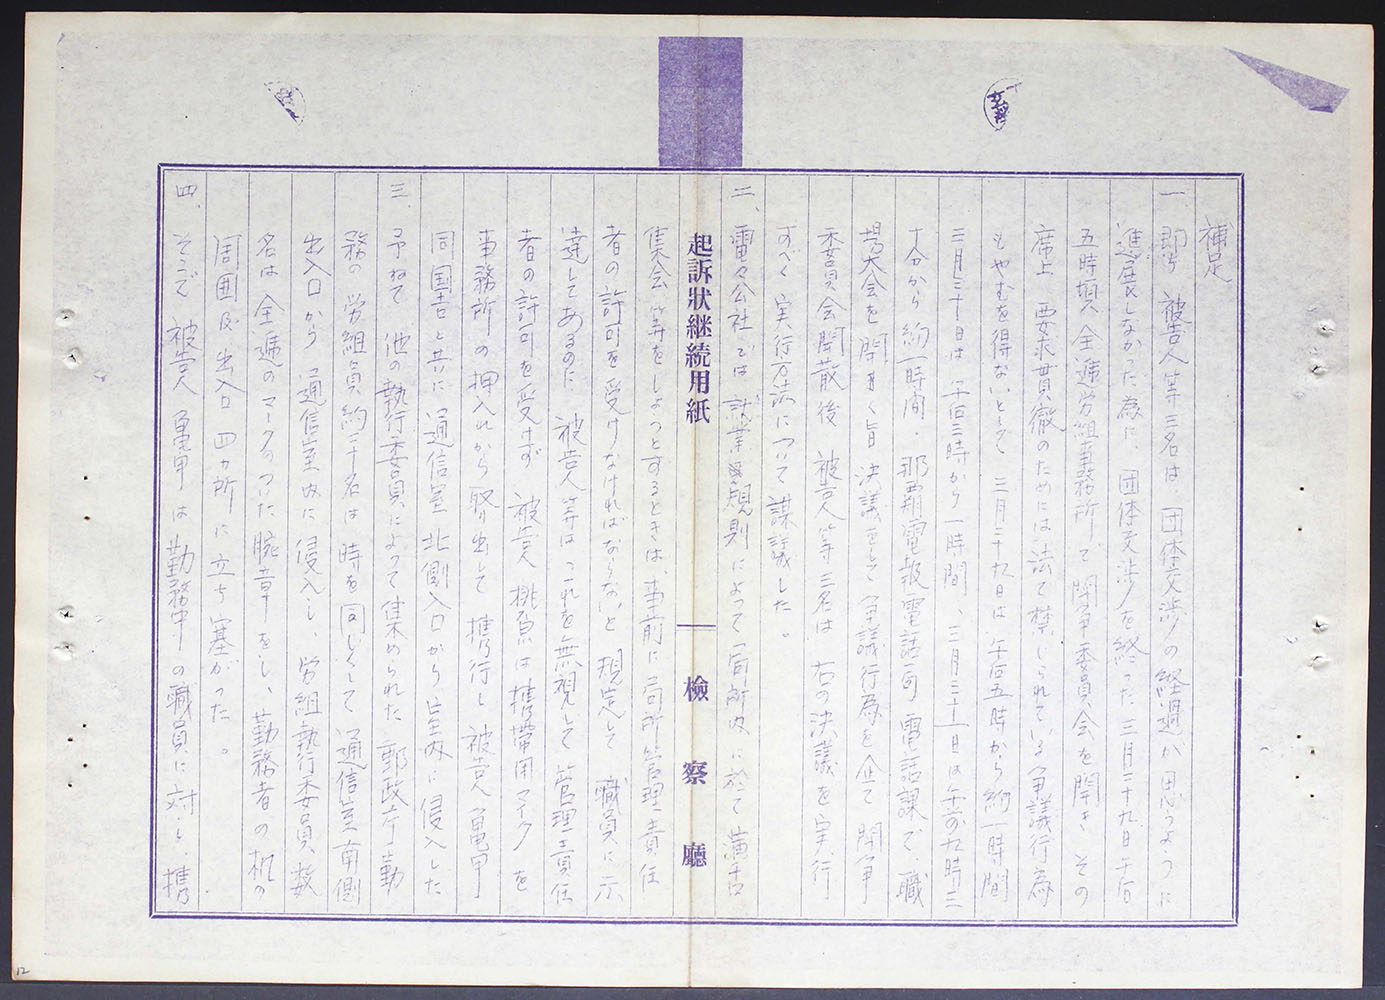 補足
一、即ち 被告人等三名は 団体交渉の経過が思うように
進展しなかった為に、団体交渉を終った三月二十九日午后
五時頃 全逓労組事務所で 闘争委員会を開き その
席上 要求貫徹のためには 法で禁じられている争議行為
もやむを得ないとして 三月二十九日は 午后五時から約一時間
三月三十日は 午后三時から一時間、三月三十一日は午前九時三
十分から約一時間、那覇電報電話局 電話課で、職
場大会を開く旨 決議をして 争議行為を企て 闘争
委員会開散後 被告人等三名は 右の決議を実行
すべく 実行方法について 謀議した。
二、電々公社では 就業規則によって 局所内に於て 演舌
起訴狀継続用紙
檢察廳
集会 等をしようとするときは、事前に局所管理責任
者の許可を受けなければならない、と 規定して 職員に示
達してあるのに 被告人等は これを無視して 管理責任
者の許可を受けず 被告人 桃原は 携帯用マイクを
事務所の押入れから 取り出して 携行し 被告人 亀甲
同国吉と共に 通信室 北側入口から 室内に侵入した
三、予ねて 他の執行委員によって 集められた 郵政庁勤
務の 労組員約二十名は 時を同じくして 通信室南側
出入口から 通信室内に侵入し、労組執行委員数
名は 全逓のマークのついた腕章をし、勤務者の机の
周囲及 出入口 四カ所に 立ち塞がった。
四、そこで 被告人 亀甲は 勤務中の職員に対し、携
12